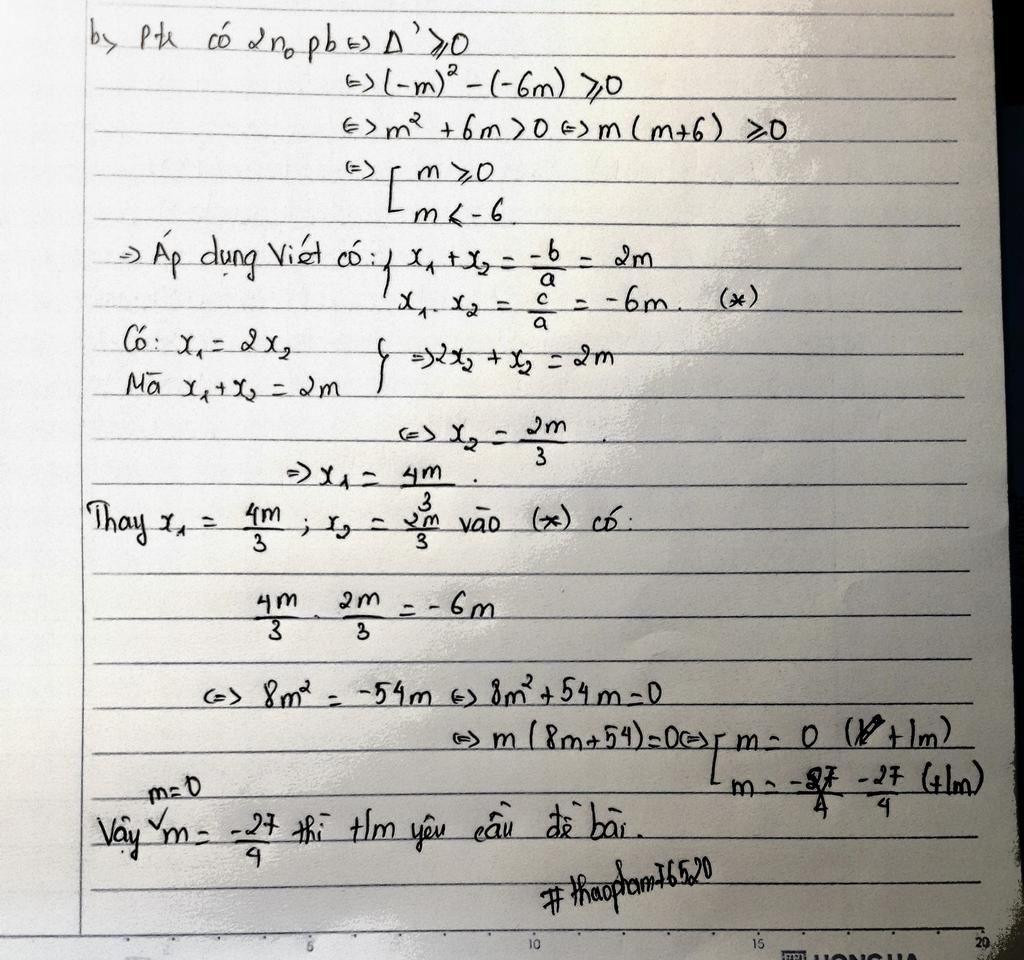 b> Ptr có 2n₀ pb ⇔ Δ' ≥ 0
⇔ (-m)² - (-6m) ≥ 0
⇔ m² + 6m > 0 ⇔ m(m+6) ≥ 0
⇔ [ m ≥ 0
m < -6.
⇒ Áp dụng Viét có: { x₁ + x₂ = -b/a = 2m
x₁. x₂ = c/a = -6m. (*)
Có: x₁ = 2x₂
Mà x₁+x₂ = 2m } ⇒ 2x₂ + x₂ = 2m
⇔ x₂ = 2m/3.
⇒ x₁ = 4m/3.
Thay x₁ = 4m/3 ; x₂ = 2m/3 vào (*) có:
4m/3 . 2m/3 = -6m
⇔ 8m² = -54m ⇔ 8m² + 54m = 0
⇔ m(8m+54)=0 ⇔ [ m = 0 (t/m)
m = -27/4 (t/m)
m=0
Vậy ˅ m = -27/4 thì t/m yêu cầu đề bài.
#thaopham76520
5 10 15 20
HONG HA